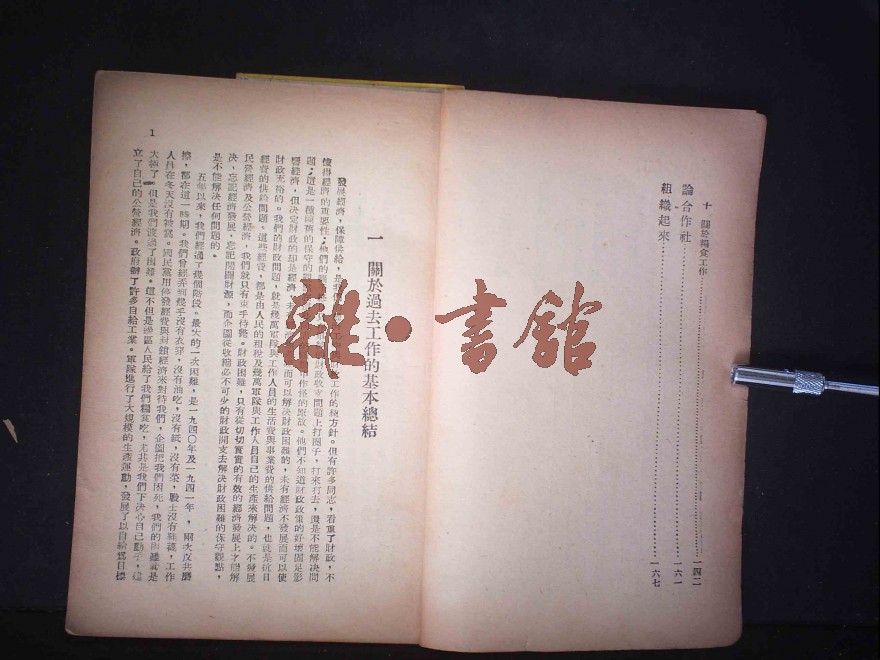 十 關於糧食工作……一四二
論合作社……一六一
組織起來……一六七
一 關於過去工作的基本總結
發展經濟,保障供給,是我們 工作的總方針。但有許多同志,看重了財政,不
懂得經濟的重要性;他們的 財政收支問題上打圈子,打來打去,還是不能解決問
題;這是一種陳舊的保守的 作怪的原故。他們不知道財政政策的好壞固足影
響經濟,但決定財政的却是經濟, 而可以解決財政困難的,未有經濟不發展而可以使
財政充裕的。我們的財政問題,就是幾萬軍隊與工作人員的生活費與事業費的供給問題,也就是抗日
經費的供給問題。這些經費,都是由人民的租稅及幾萬軍隊與工作人員自己的生產來解決的。不發展
民營經濟及公營經濟,我們就只有束手待斃。財政困難,只有從切切實實的有效的經濟發展上才能解
決,忘記經濟發展,忘記開闢財源,而企圖從收縮必不可少的財政開支去解決財政困難的保守觀點,
是不能解決任何問題的。
五年以來,我們經過了幾個階段。最大的一次困難,是一九四〇年及一九四一年,兩次反共磨
擦,都在這一時期。我們曾經弄到幾乎沒有衣穿,沒有油吃,沒有紙,沒有菜,戰士沒有鞋襪,工作
人員在冬天沒有被蓋。國民黨用停發經費與封鎖經濟來對待我們,企圖把我們困死,我們的困難眞是
大極了。但是我們渡過了困難。這不但是邊區人民給了我們糧食吃,尤其是我們下決心自己動手,建
立了自己的公營經濟。政府辦了許多自給工業。軍隊進行了大規模的生產運動,發展了以自給爲目標
1
雜·書館